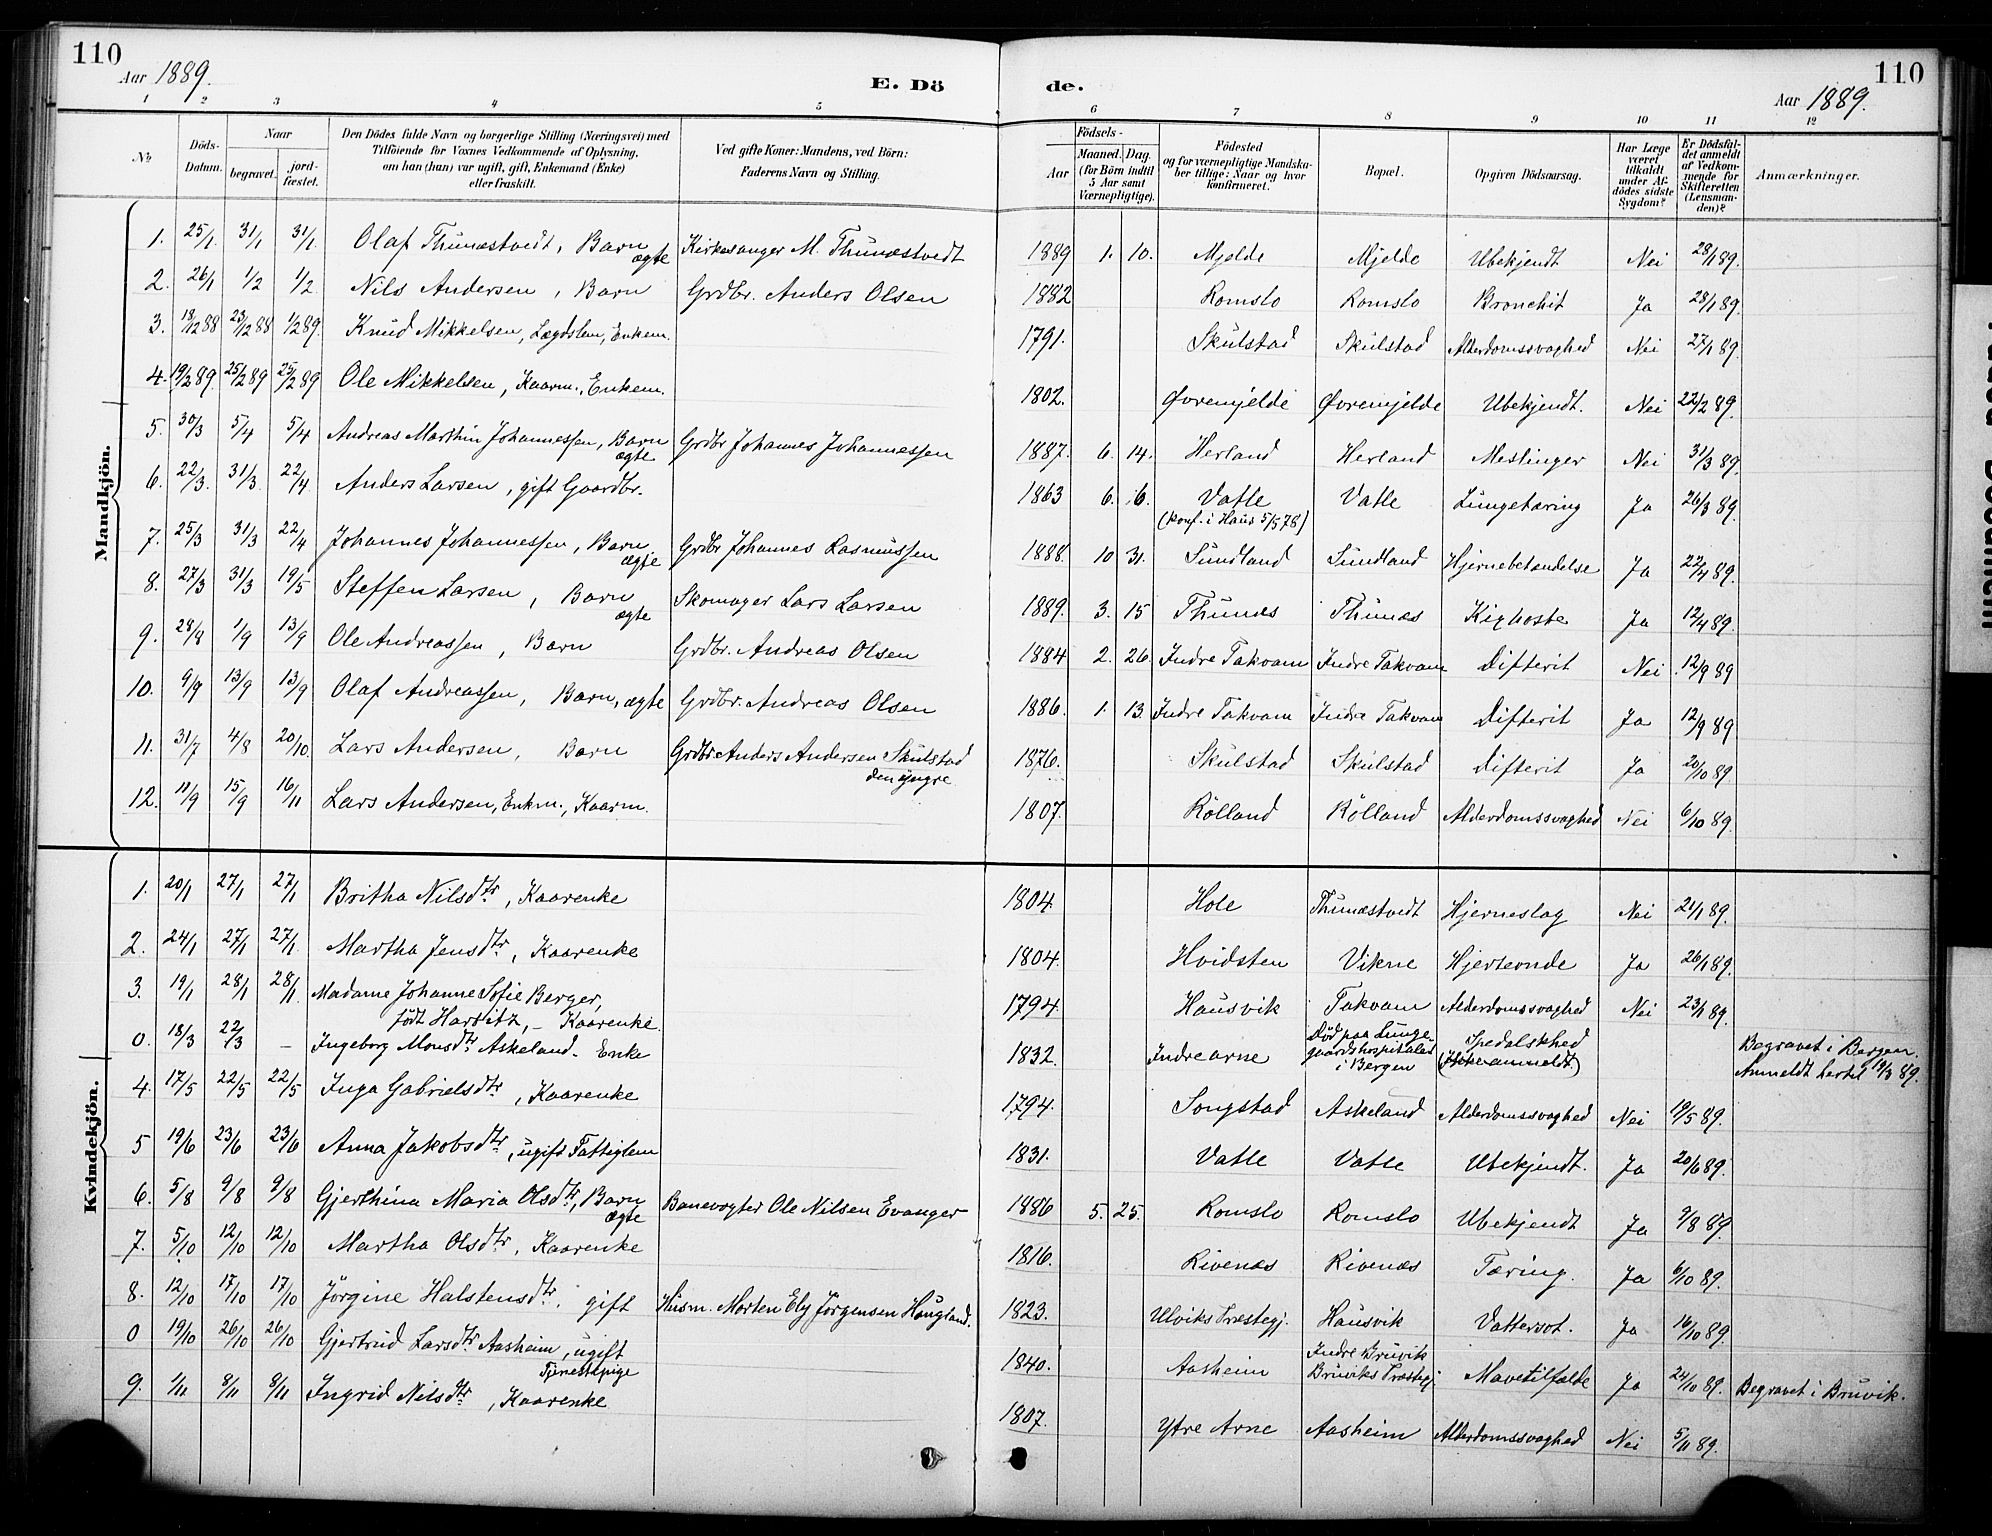 110
Aar 1889.
E. Dö
de.
Aar 1889.
110
1 2 3 4 5 6 7 8 9 10 11 12
No
Döds-Datum.
Naar
begravet.
jordfæstet.
Den Dödes fulde Navn og borgerlige Stilling (Næringsvei) med
Tilföiende for Voxnes Vedkommende af Oplysning,
om han (hun) var ugift, gift, Enkemand (Enke)
eller fraskilt.
Ved gifte Koner: Mandens, ved Börn:
Faderens Navn og Stilling.
Födsels-
Aar
Maaned. Dag.
(for Börn indtil
5 Aar samt
Værnepligtige).
Födested
og for værnepligtige Mandska-
ber tillige: Naar og hvor
konfirmeret.
Bopæl.
Opgiven Dödsaarsag.
Har Læge
været
tilkaldt
under Af-
dödes sidste
Sygdom?
Er Dödsfal-
det anmeldt
af Vedkom-
mende for
Skifteretten
(Lensman-
den)?
Anmærkninger.
Mandkjön.
1. 25/1 31/1 31/1 Olaf Thunæstvedt, Barn ægte Kirkesanger M. Thunæstvedt 1889 1. 10. Mjelde Mjelde Ubekjendt Nei 28/1 89.
2. 26/1 1/2 1/2 Nils Andersen, Barn Grdbr. Anders Olsen 1882 Romslo Romslo Bronchit Ja 28/1 89.
3. 18/12 88 23/12 88 1/2 89. Knud Mikkelsen, Lægdslem, Enkem. 1791. Skulstad Skulstad Alderdomssvaghed Nei 27/1 89.
4. 19/2 89 25/2 89 25/2 89 Ole Mikkelsen, Kaarm., Enkem. 1802. Øvremjelde Øvremjelde Ubekjendt. Nei 22/2 89.
5. 30/3 5/4 5/4 Andreas Marthin Johannessen, Barn ægte Grdbr Johannes Johannessen 1887. 6. 14. Herland Herland Meslinger Nei 31/3 89.
6. 22/3. 31/3 22/4 Anders Larsen, gift Gaardbr. 1863 6. 6. Vatle (konf. i Haus 5/5 78) Vatle Lungetæring Ja 26/3 89.
7. 25/3 31/3 22/4 Johannes Johannessen, Barn ægte Grdbr Johannes Rasmussen 1888. 10 31. Sundland Sundland Hjernebetændelse Ja 22/4 89.
8. 27/3 31/3 19/5 Steffen Larsen, Barn ægte Skomager Lars Larsen 1889. 3. 15 Thunes Thunæs Kighoste Ja 12/4 89.
9. 28/8 1/9 13/9 Ole Andreassen, Barn Grdbr. Andreas Olsen 1884 2. 26. Indre Takvam Indre Takvam Difterit Nei 12/9 89
10. 9/9 13/9 13/9 Olaf Andreassen, Barn, ægte Grdbr. Andreas Olsen 1886. 1. 13. Indre Takvam Indre Takvam Difterit Ja 12/9 89
11. 31/7 4/8 20/10. Lars Andersen, Barn Grdbr Anders Andersen Skulstad den yngre 1876. Skulstad Skulstad Difterit Ja 20/10 89
12. 11/9 15/9 16/11 Lars Andersen, Enkm., Kaarm. 1807. Rölland Rölland Alderdomssvaghed Nei 6/10 89.
Kvindekjön.
1. 20/1 27/1 27/1 Britha Nilsdtr, Kaarenke 1804. Hole Thunæstvedt Hjerneslag Nei 21/1 89.
2. 24/1 27/1 27/1. Martha Jensdtr, Kaarenke 1804. Hvidsten Vikne Hjerteonde Ja 26/1 89.
3. 19/1 28/1 28/1 Madame Johanne Sofie Berger, födt Kaarenke 1794 Hausvik Takvam Alderdomssvaghed Nei 23/1 89.
0. 18/3 22/3 – Ingeborg Monsdtr Askeland. Enke 1832. Indre arne Död paa Lunge-gaardshospitalet i Bergen Spedalskhed Begravet i Bergen. Anmeldt hertil 19/3 89.
4. 17/5 22/5 22/5 Inga Gabrielsdtr, Kaarenke 1794. Songstad Askeland Alderdomssvaghed Nei 19/5 89.
5 19/6 23/6 23/6 Anna Jakobsdtr, ugift Fattiglem 1831. Vatle Vatle Ubekjendt. Ja 20/6 89.
6. 5/8 9/8 9/8 Gjerthina Maria Olsdtr, Barn ægte Banevogter Ole Nilsen Evanger 1886 5. 25. Romslo Romslo Ubekjendt Ja 9/8 89.
7. 5/10 12/10 12/10 Martha Olsdtr, Kaarenke 1816. Rivenæs Rivenæs Tæring. Ja 6/10 89.
8. 12/10 17/10 17/10 Jörgine Halstensdtr, gift Husm. Morten Ely Jörgensen Haugland. 1823. Ulviks Præstegj. Hausvik Vattersot. Ja 16/10 89.
0 19/10 26/10 26/10 Gjertrud Larsdtr Aasheim, ugift Tjenestepige 1840. Aasheim Indre Bruvik Bruviks Præstegj. Mavetilfælde Ja 24/10 89. Begravet i Bruvik.
9. 1/11 8/11 8/11 Ingrid Nilsdtr, Kaarenke 1807. Ytre Arne Aasheim Alderdomssvaghed Nei 5/11 89.